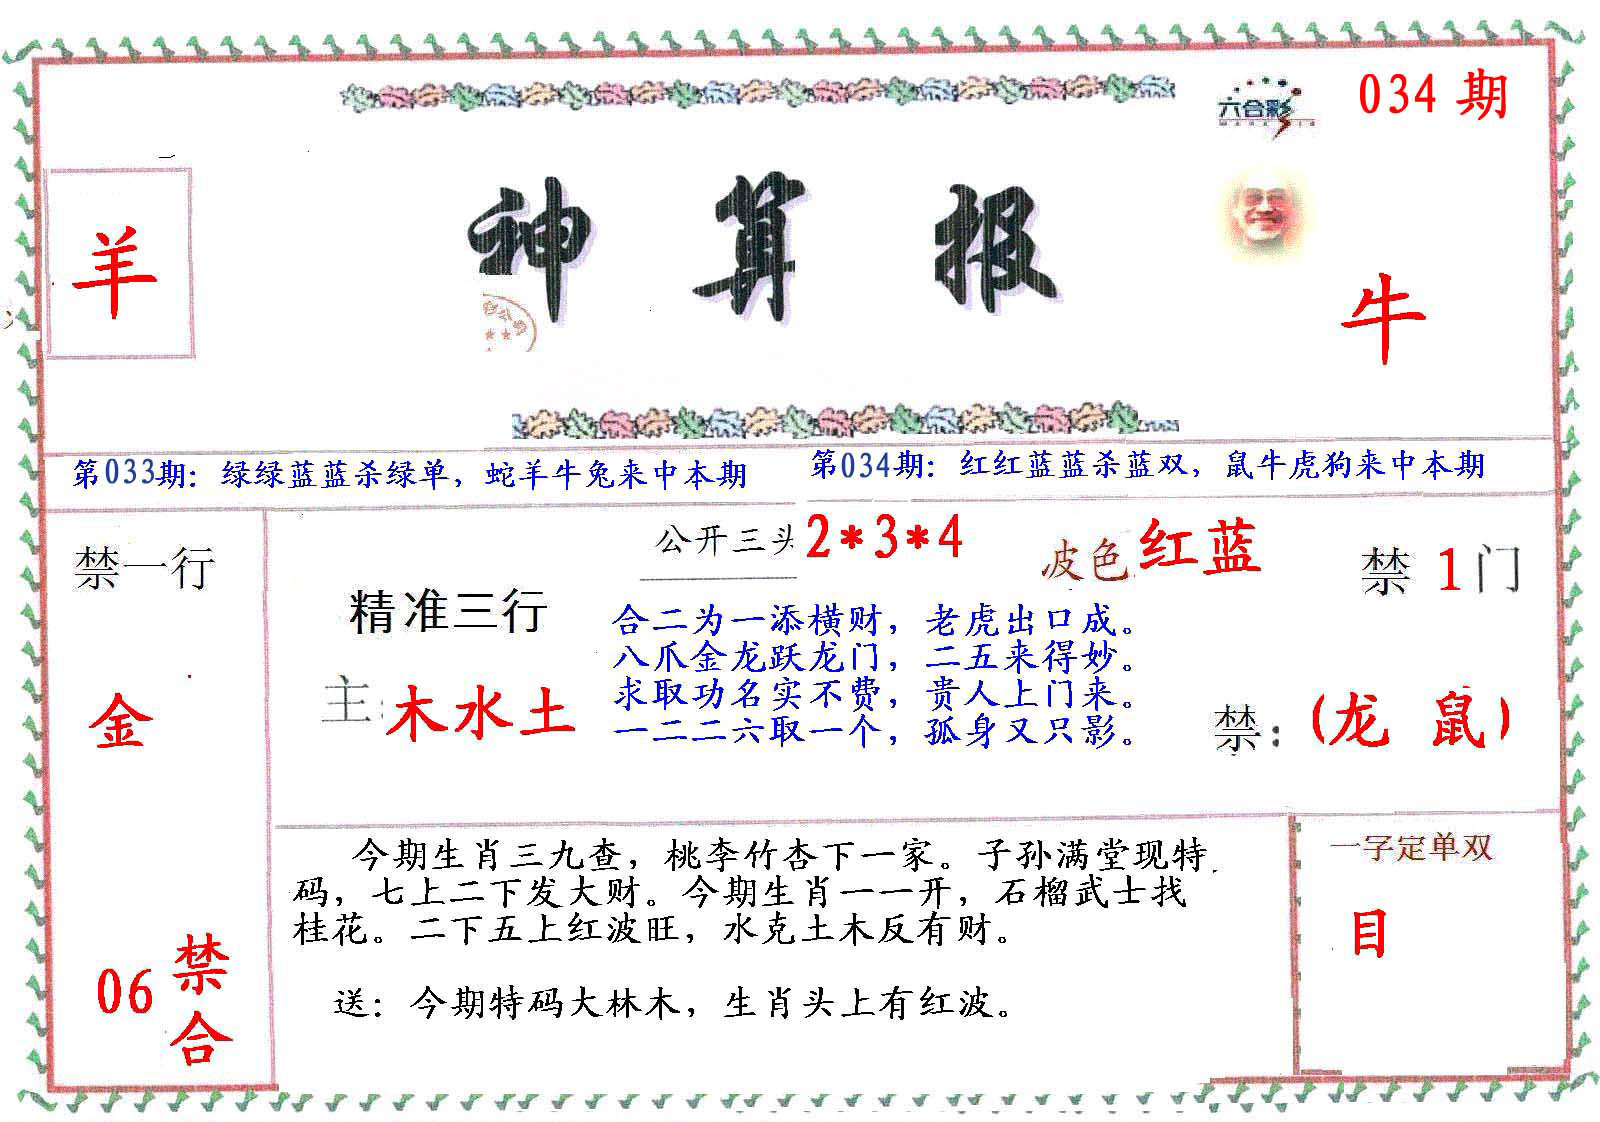 034 期
六合彩
羊
神 算 报
牛
第033期：绿绿蓝蓝杀绿单，蛇羊牛兔来中本期
第034期：红红蓝蓝杀蓝双，鼠牛虎狗来中本期
禁一行
金
06 禁合
公开三头 2*3*4
波色 红蓝
禁 1 门
精准三行
主：木水土
合二为一添横财，老虎出口成。
八爪金龙跃龙门，二五来得妙。
求取功名实不费，贵人上门来。
一二二六取一个，孤身又只影。
禁：(龙 鼠)
今期生肖三九查，桃李竹杏下一家。子孙满堂现特
码，七上二下发大财。今期生肖一一开，石榴武士找
桂花。二下五上红波旺，水克土木反有财。
送：今期特码大林木，生肖头上有红波。
一字定单双
目